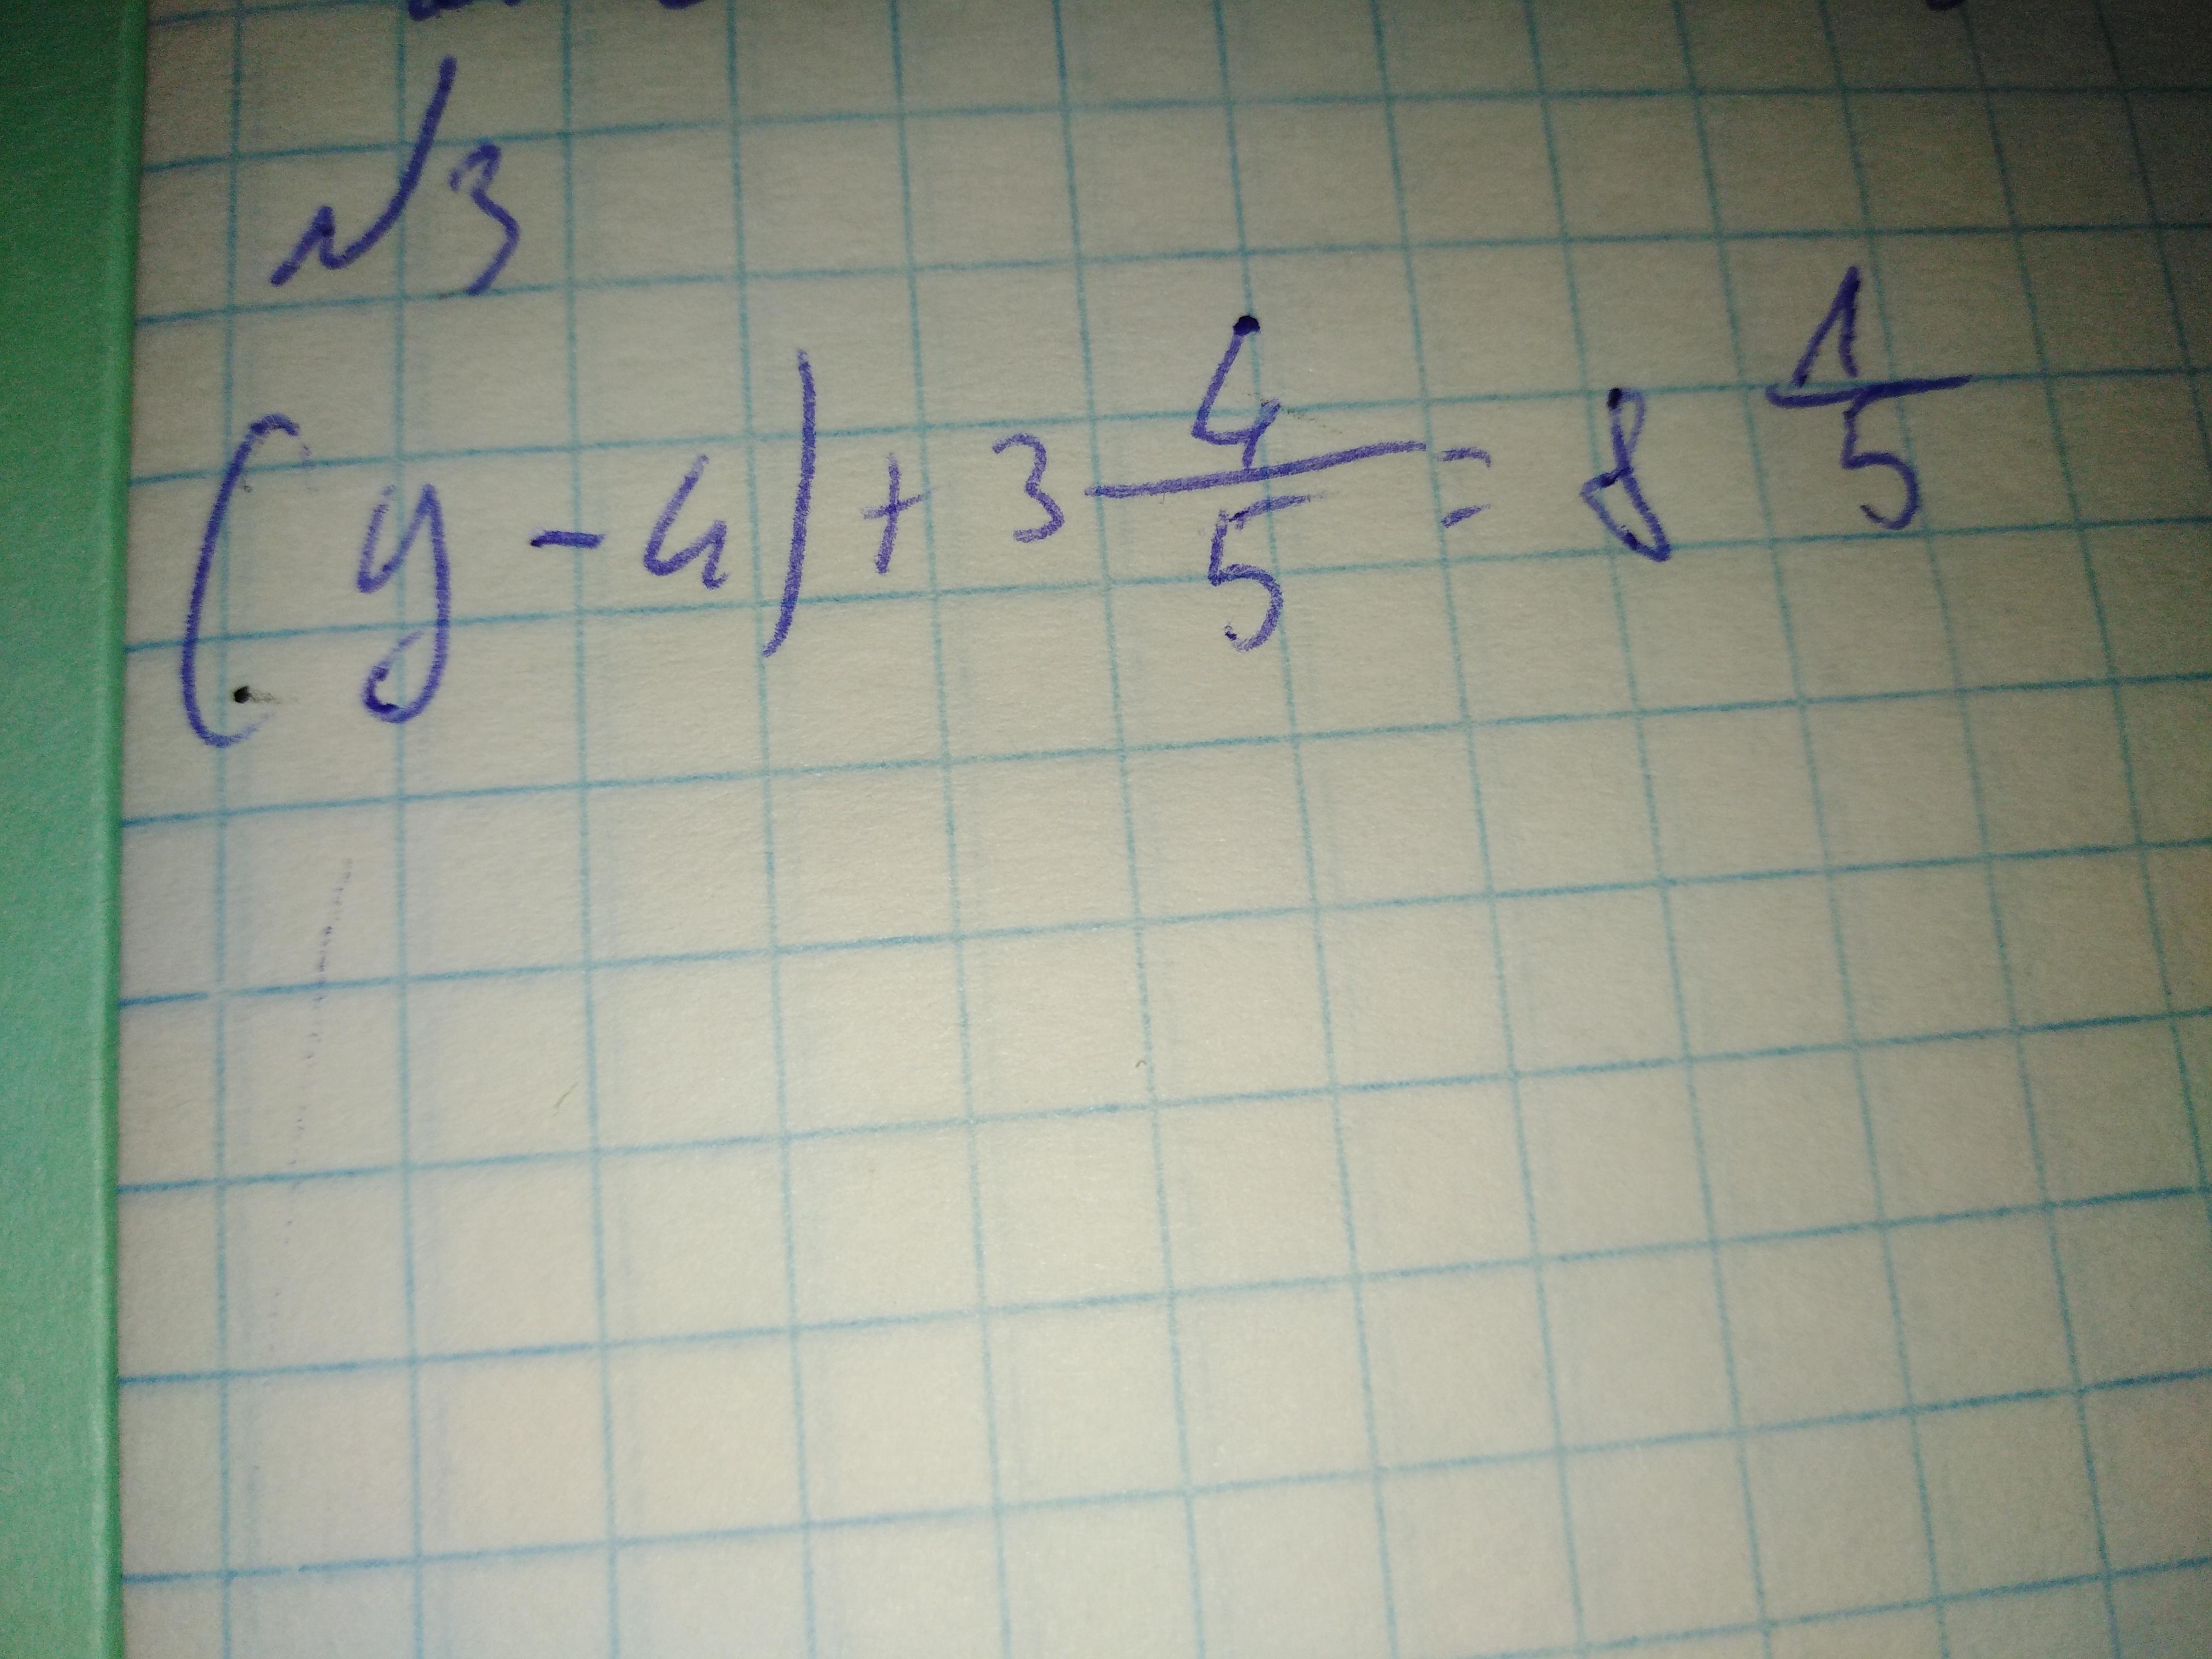 №3
(y - 4) + 3 4/5 = 8 1/5